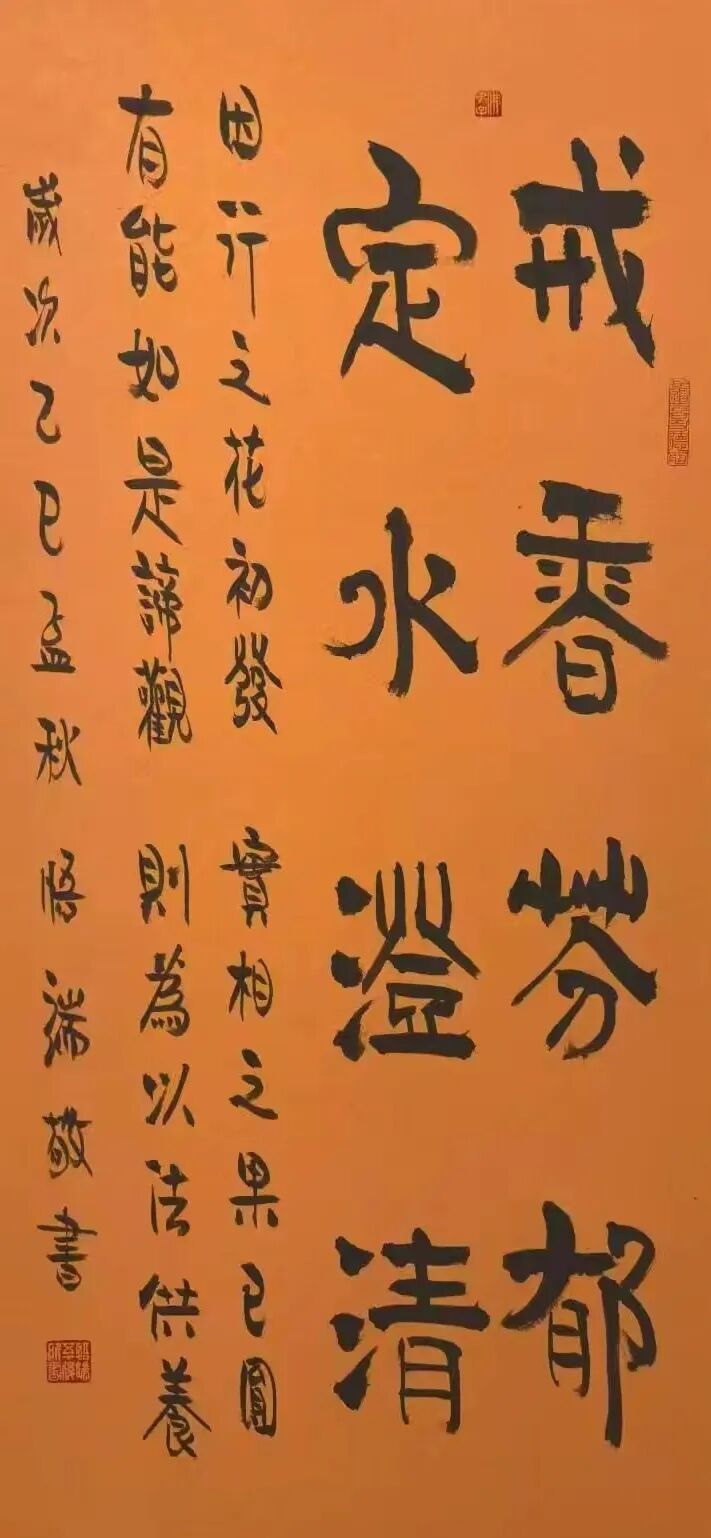 戒香芬郁
定水澄清
因行之花初發 實相之果已圓
有能如是諦觀 則為以法供養
歲次乙巳孟秋 悟端敬書